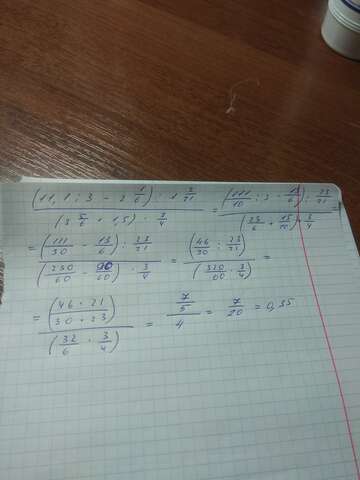 (11,1 : 3 - 2 1/6) : 1 2/21 / (3 5/6 + 1,5) · 3/4 = (111/10 : 3 - 13/6) : 23/21 / (23/6 + 15/10) · 3/4 =
= (111/30 - 13/6) : 23/21 / (230/60 + 90/60) · 3/4 = (46/30 : 23/21) / (320/60 · 3/4) =
= (46 · 21 / 30 · 23) / (32/6 · 3/4) = 7/5 / 4 = 7/20 = 0,35